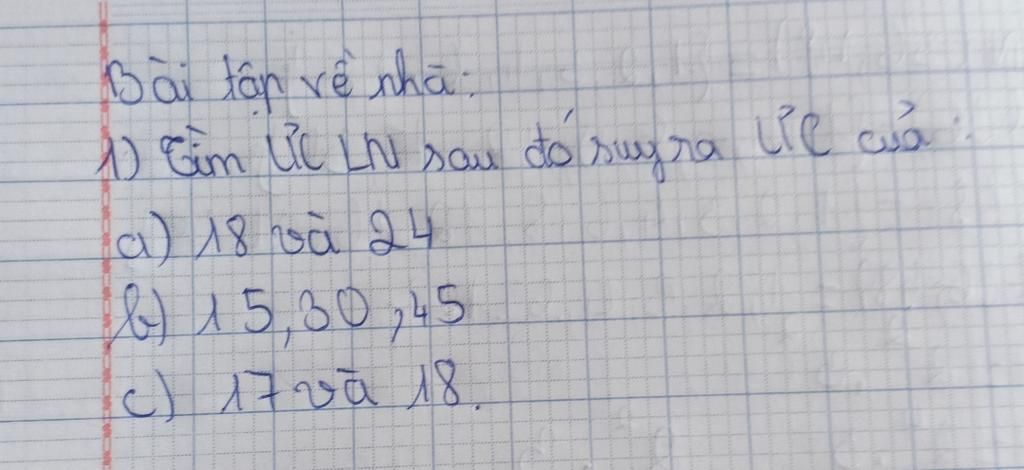 Bài tập về nhà:
1) Tìm ƯCLN sau đó suy ra ƯC của:
a) 18 và 24
b) 15, 30, 45
c) 17 và 18.